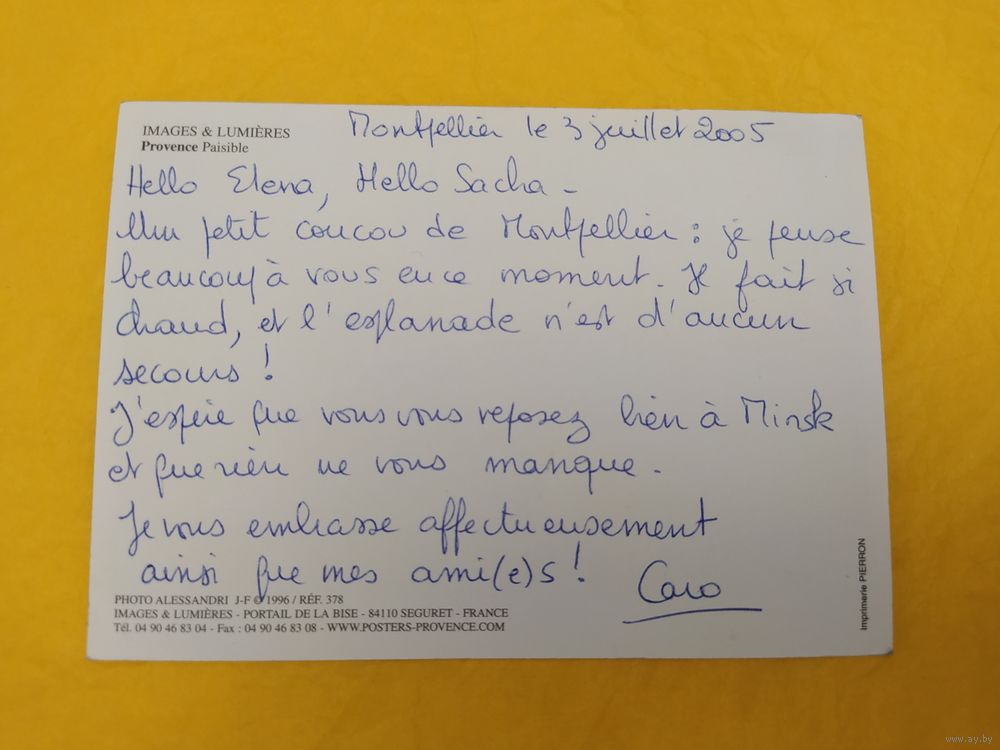 IMAGES & LUMIÈRES
Provence Paisible
Montpellier le 3 juillet 2005
Hello Elena, Hello Sacha -
Un petit coucou de Montpellier : je pense
beaucoup à vous en ce moment. Il fait si
chaud, et l'esplanade n'est d'aucun
secours !
J'espère que vous vous reposez bien à Minsk
et que rien ne vous manque.
Je vous embrasse affectueusement
ainsi que mes ami(e)s !
Caro
PHOTO ALESSANDRI J-F © 1996 / RÉF. 378
IMAGES & LUMIÈRES - PORTAIL DE LA BISE - 84110 SEGURET - FRANCE
Tél. 04 90 46 83 04 - Fax : 04 90 46 83 08 - WWW.POSTERS-PROVENCE.COM
Imprimerie PIERRON
www.ay.by